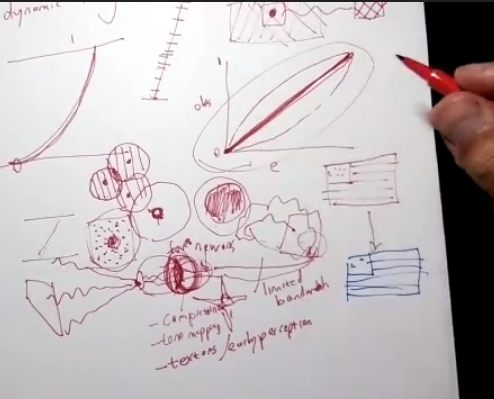 dynamic
1
1
obs
0
e
neurons
limited
bandwidth
- Compression
- tone mapping
- textons / early perception